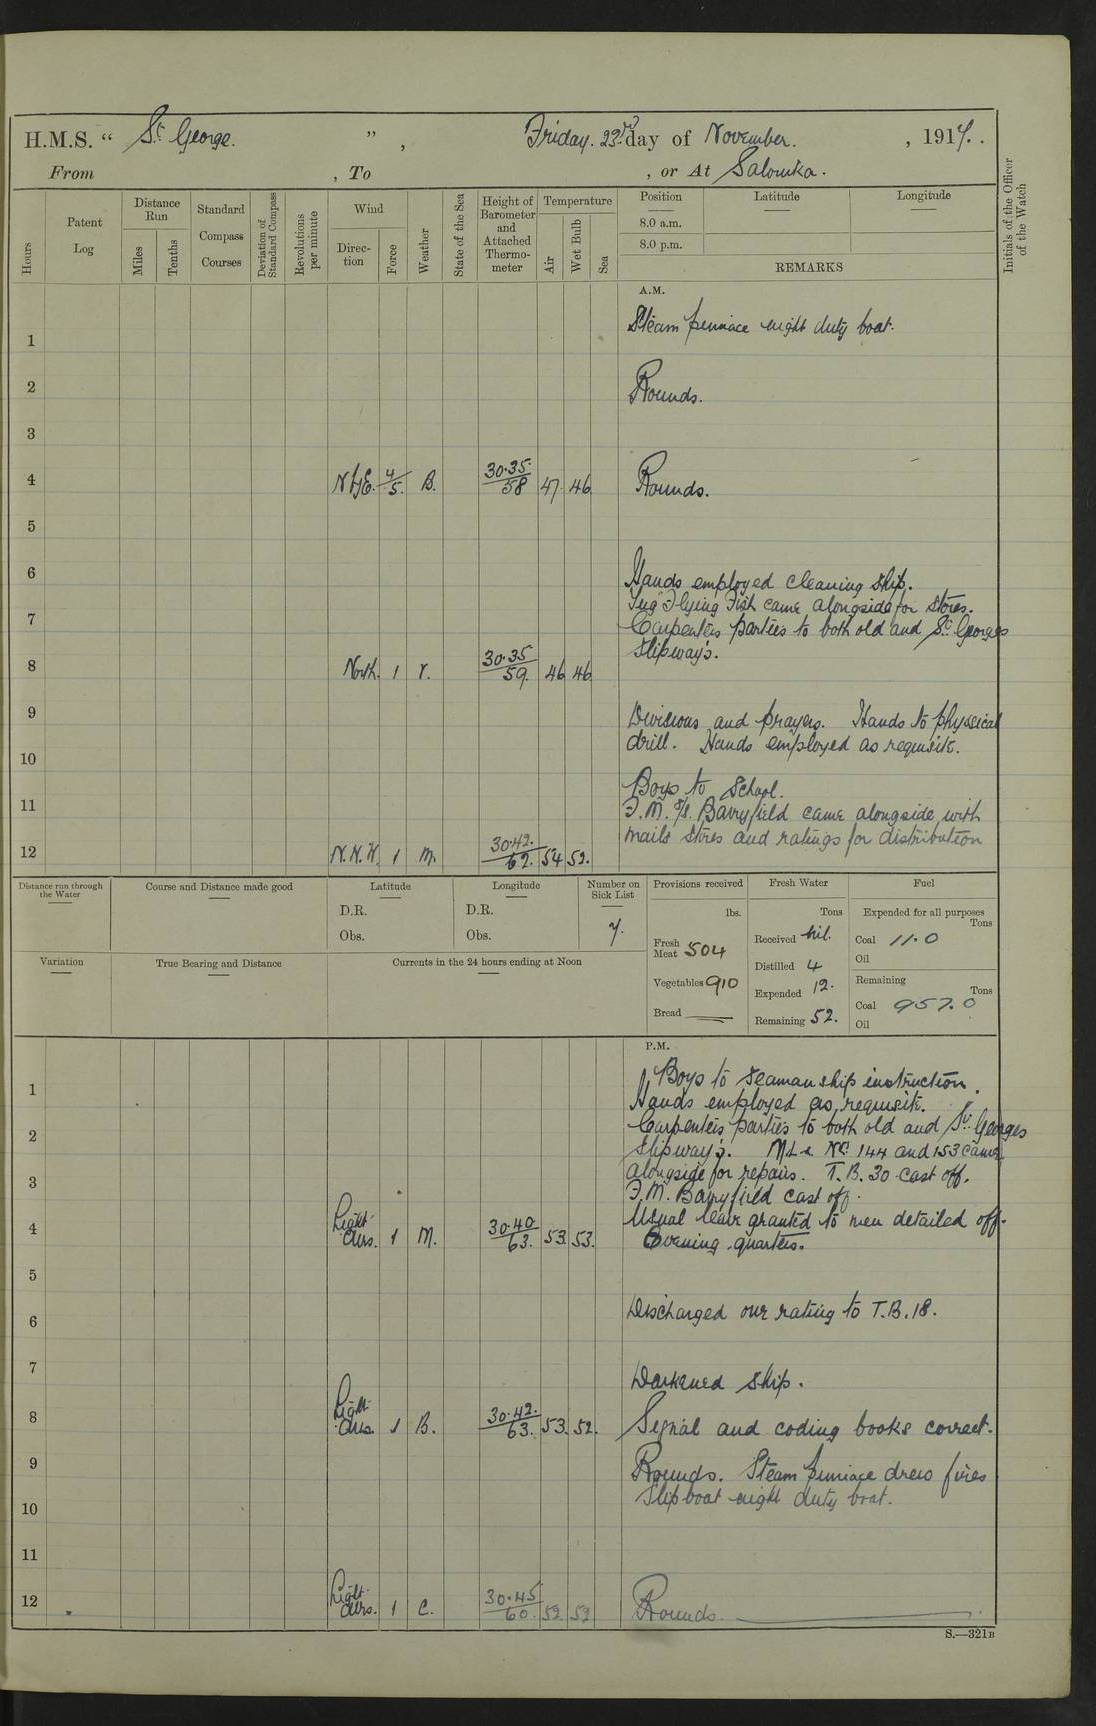 H.M.S. “ St George. ” , Friday. 23rd day of November. , 1917.
From , To , or At Salonika.
Hours
Patent Log
Distance Run
Miles
Tenths
Standard Compass Courses
Deviation of Standard Compass
Revolutions per minute
Wind
Direc-tion
Force
Weather
State of the Sea
Height of Barometer and Attached Thermo-meter
Temperature
Air
Wet Bulb
Sea
Position
8.0 a.m.
8.0 p.m.
Latitude
Longitude
REMARKS
Initials of the Officer of the Watch
A.M.
1 Steam pinnace night duty boat.
2 Rounds.
3
4 N by E. 4/5. B. 30.35./58 47. 46 Rounds.
5
6 Hands employed cleaning ship.
Tug Flying Fish came alongside for stores.
7 Carpenters parties to both old and St. Georges
Slipway's.
8 North. 1 r. 30.35/59. 46 46
9 Divisions and prayers. Hands to physical
drill. Hands employed as requisite.
10
Boys to School.
11 F.M. S/S. Barryfield came alongside with
mails stores and ratings for distribution
12 N.N.W. 1 M. 30.42./62. 54 52.
Distance run through the Water
Course and Distance made good
Latitude
D.R.
Obs.
Longitude
D.R.
Obs.
Number on Sick List
7.
Provisions received
lbs.
Fresh Meat 504
Vegetables 910
Bread
Fresh Water
Tons
Received Nil.
Distilled 4
Expended 12.
Remaining 52.
Fuel
Expended for all purposes
Tons
Coal 11.0
Oil
Remaining
Tons
Coal 957.0
Oil
Variation
True Bearing and Distance
Currents in the 24 hours ending at Noon
P.M.
Boys to seamanship instruction.
1 Hands employed as requisite.
Carpenters parties to both old and St. Georges
2 slipway's. M.L.s Nos. 144 and 153 came
alongside for repairs. T.B. 30 cast off.
3 F.M. Barryfield cast off.
Usual leave granted to men detailed off.
4 Light Airs. 1 M. 30.40/63. 53. 53. Evening quarters.
5
6 Discharged one rating to T.B. 18.
7 Darkened ship.
8 Light Airs. 1 B. 30.42./63. 53. 52. Signal and coding books correct.
9 Rounds. Steam pinnace drew fires
Slipboat night duty boat.
10
11
12 Light Airs. 1 C. 30.45/60. 52 52 Rounds.
S.—321B